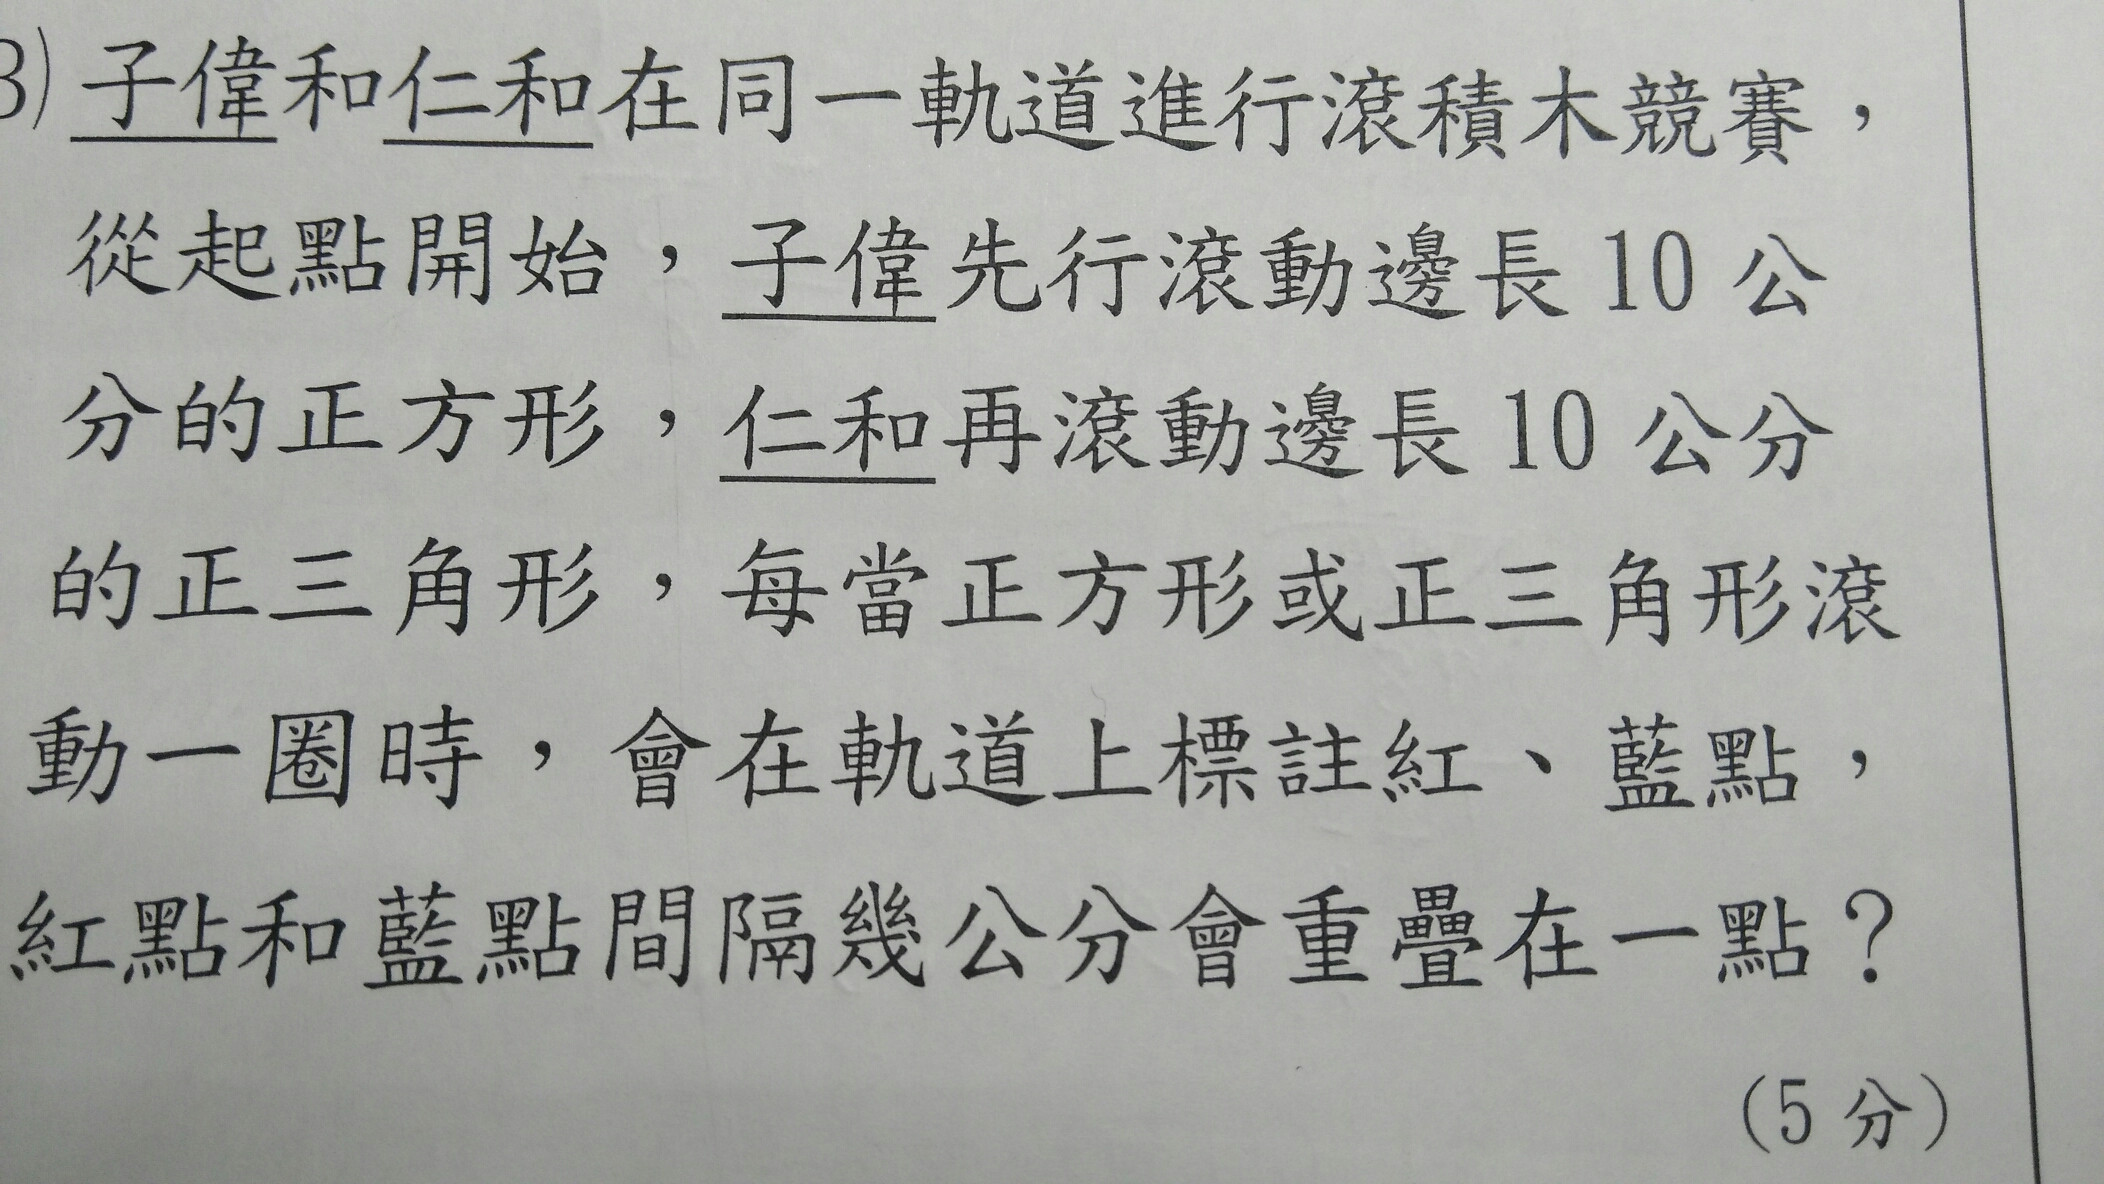 3) 子偉和仁和在同一軌道進行滾積木競賽，
從起點開始，子偉先行滾動邊長 10 公
分的正方形，仁和再滾動邊長 10 公分
的正三角形，每當正方形或正三角形滾
動一圈時，會在軌道上標註紅、藍點，
紅點和藍點間隔幾公分會重疊在一點？
（5 分）